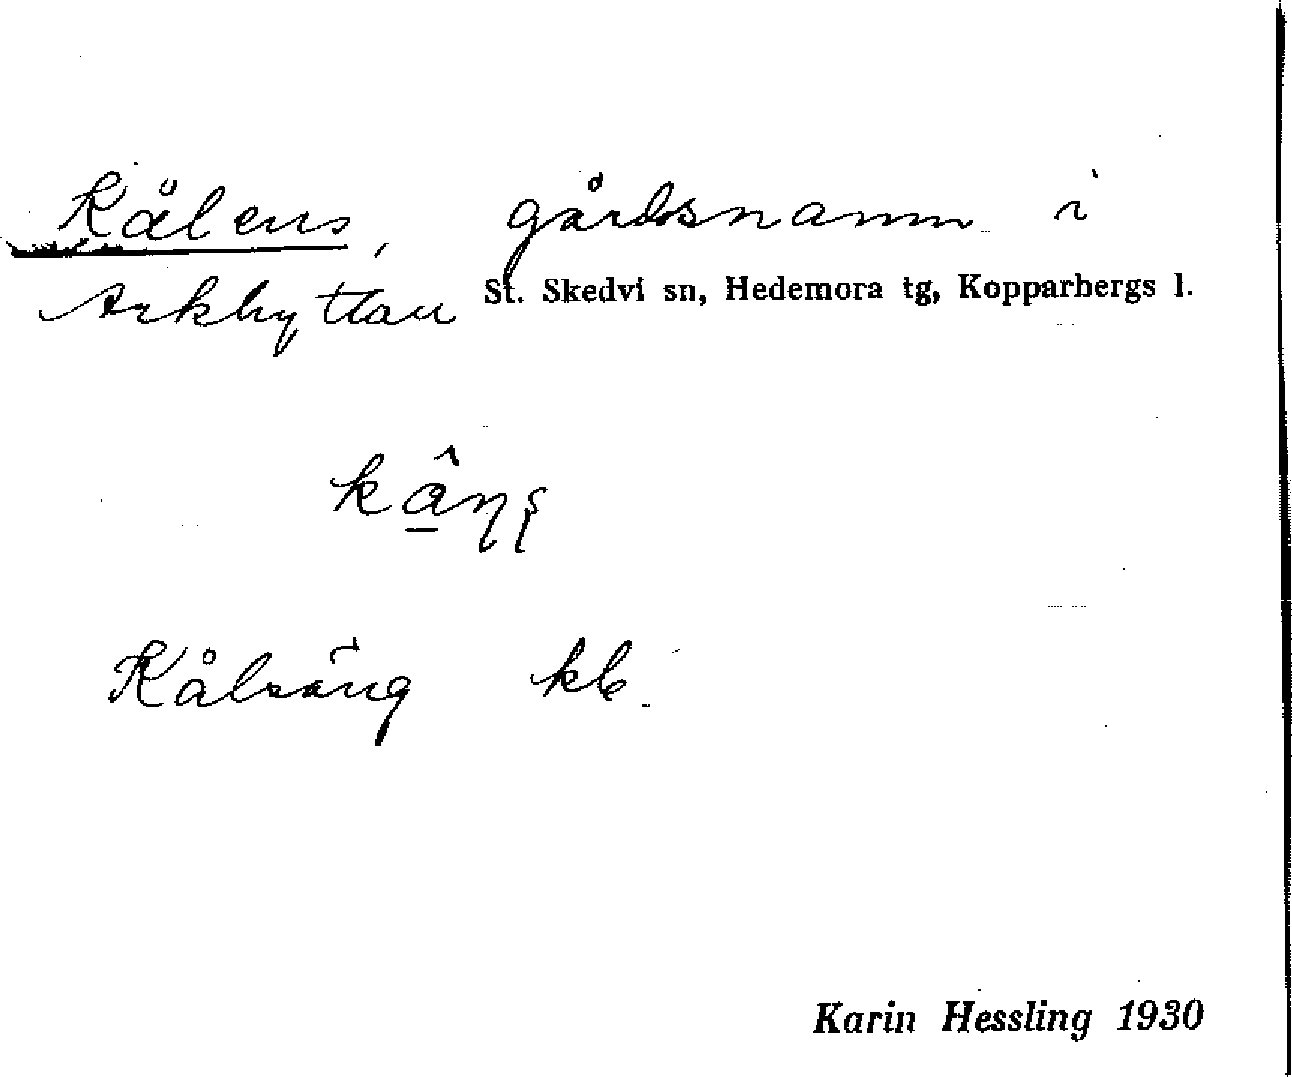 Kälens, gårdsnamn i
Arkhyttan St. Skedvi sn, Hedemora tg, Kopparbergs l.
Kålsäng kb.
Karin Hessling 1930